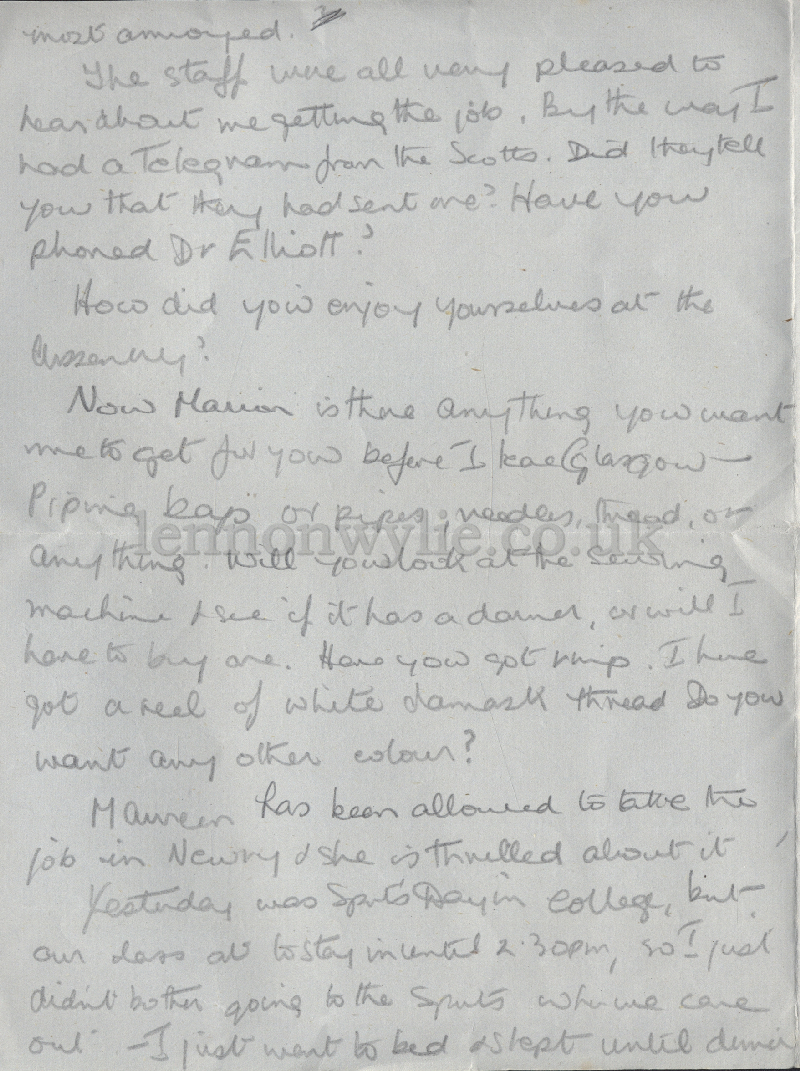 most annoyed.
The staff were all very pleased to
hear about me getting the job. By the way I
had a Telegram from the Scotts. Did they tell
you that they had sent one? Have you
phoned Dr Elliott?
How did you enjoy yourselves at the
Assembly?
Now Marion is there anything you want
me to get for you before I leave Glasgow —
Piping bags or pipes, needles, thread, or
anything. Will you look at the sewing
machine & see if it has a darner, or will I
have to buy one. Have you got . I have
got a reel of white damask thread Do you
want any other colour?
Maureen has been allowed to take the
job in Newry & she is thrilled about it
Yesterday was Sports Day in College, but
our class to stay in until 2.30pm, so I just
didn't bother going to the Sports when we came
out - I just went to bed & slept until dinner
lennonwylie.co.uk